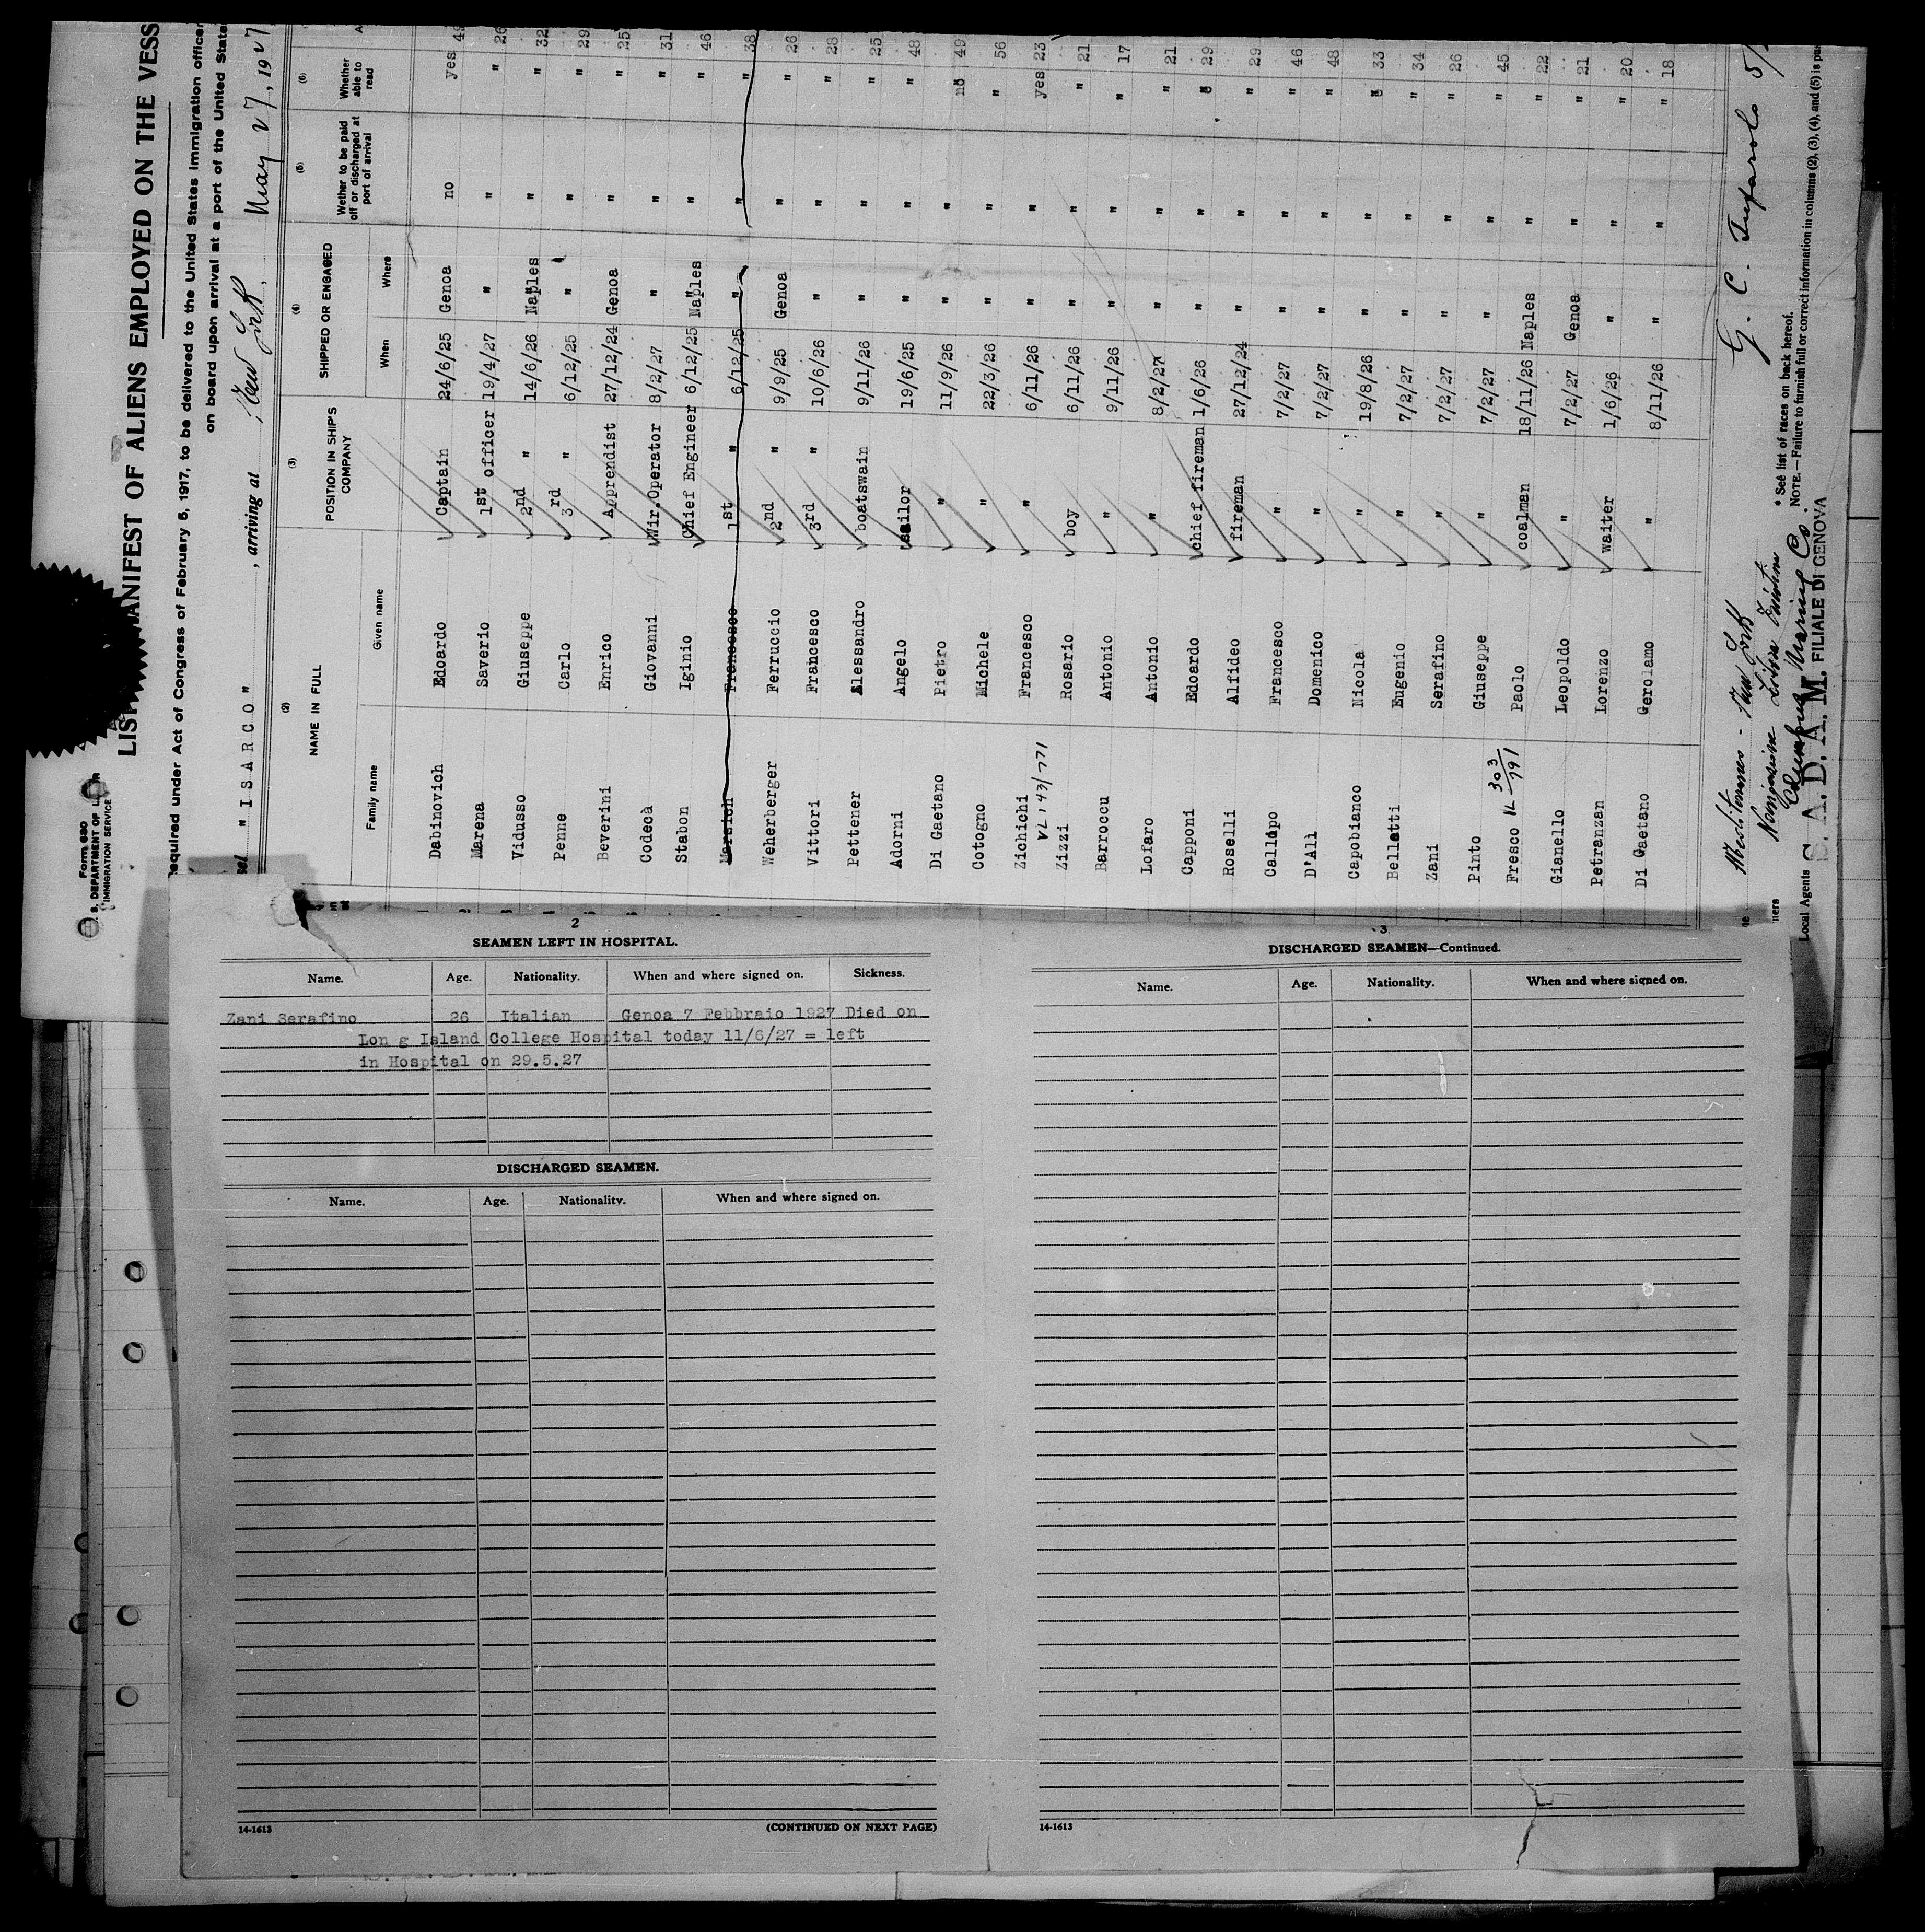 Form 680
U. S. DEPARTMENT OF LABOR
IMMIGRATION SERVICE
LIST MANIFEST OF ALIENS EMPLOYED ON THE VESS
Required under Act of Congress of February 5, 1917, to be delivered to the United States immigration officer
on board upon arrival at a port of the United State
sel "ISARCO" , arriving at New York, May 27, 1927
(2) NAME IN FULL (3) POSITION IN SHIP'S COMPANY (4) SHIPPED OR ENGAGED (5) Wether to be paid off or discharged at port of arrival (6) Whether able to read A
Family name Given name When Where
Dabinovich Edoardo Captain 24/6/25 Genoa no yes 4
Marena Saverio 1st officer 19/4/27 " " " 26
Vidusso Giuseppe 2nd " 14/6/26 Naples " " 32
Penne Carlo 3rd " 6/12/25 " " " 29
Beverini Enrico Apprendist 27/12/24 Genoa " " 25
Codecà Giovanni Wir.Operator 8/2/27 " " " 31
Stabon Iginio Chief Engineer 6/12/25 Naples " " 46
Marsich Francesco 1st " 6/12/25 " " " 38
Weherberger Ferruccio 2nd " 9/9/25 Genoa " " 26
Vittori Francesco 3rd " 10/6/26 " " " 28
Pettener Alessandro boatswain 9/11/26 " " " 25
Adorni Angelo sailor 19/6/25 " " " 48
Di Gaetano Pietro " 11/9/26 " " no 49
Cotogno Michele " 22/3/26 " " " 56
Zichichi Francesco " 6/11/26 " " yes 23
VL 143/771
Zizzi Rosario boy 6/11/26 " " " 21
Barroccu Antonio " 9/11/26 " " " 17
Lofaro Antonio " 8/2/27 " " " 21
Capponi Edoardo chief fireman 1/6/26 " " " 29
Roselli Alfideo fireman 27/12/24 " " " 29
Callipo Francesco " 7/2/27 " " " 46
D'Alì Domenico " 7/2/27 " " " 48
Capobianco Nicola " 19/8/26 " " " 33
Bellatti Eugenio " 7/2/27 " " " 34
Zani Serafino " 7/2/27 " " " 26
Pinto Giuseppe " 7/2/27 " " " 45
Fresco Paolo coalman 18/11/26 Naples " " 22
303
791
Gianello Leopoldo " 7/2/27 Genoa " " 21
Petranzan Lorenzo waiter 1/6/26 " " " 20
Di Gaetano Gerolamo " 8/11/26 " " " 18
New York
Navigazione Libera Triestina
Local Agents S. A. D. A. M. FILIALE DI GENOVA
* See list of races on back hereof.
NOTE. — Failure to furnish full or correct information in columns (2), (3), (4), and (5) is pu
2
SEAMEN LEFT IN HOSPITAL.
Name. Age. Nationality. When and where signed on. Sickness.
Zani Serafino 26 Italian Genoa 7 Febbraio 1927 Died on
Lon g Island College Hospital today 11/6/27 = left
in Hospital on 29.5.27
DISCHARGED SEAMEN.
Name. Age. Nationality. When and where signed on.
14-1613 (CONTINUED ON NEXT PAGE)
3
DISCHARGED SEAMEN—Continued.
Name. Age. Nationality. When and where signed on.
14-1613